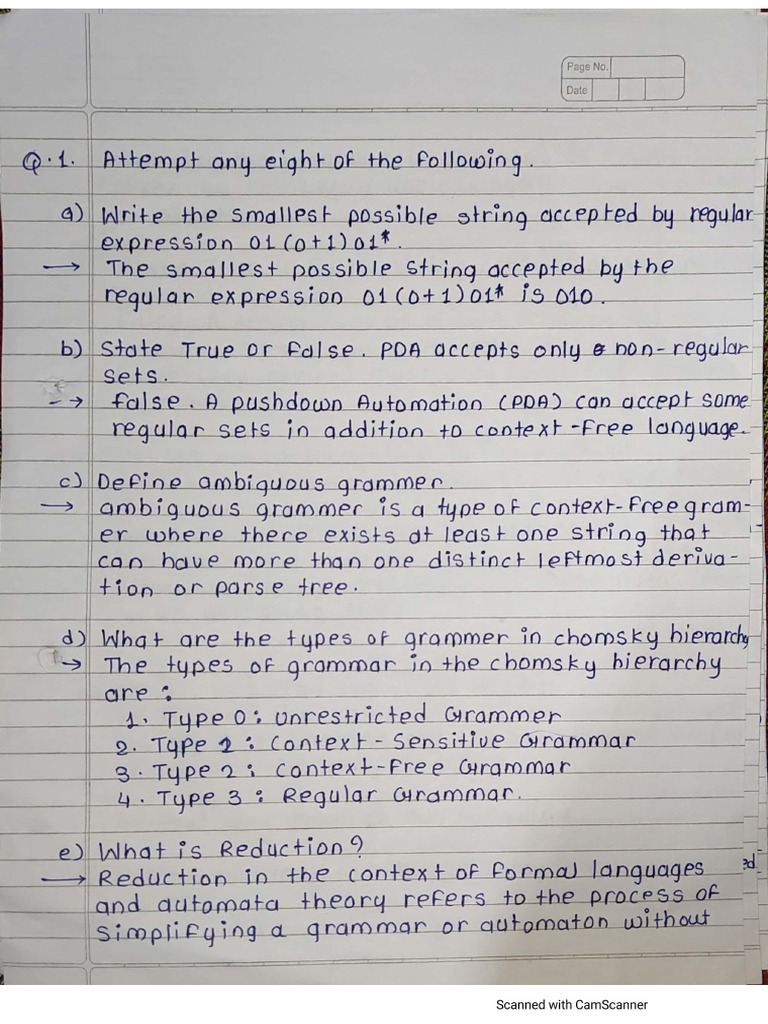 Page No.
Date
Q.1. Attempt any eight of the following.
a) Write the smallest possible string accepted by regular
expression 01(0+1)01*.
→ The smallest possible string accepted by the
regular expression 01(0+1)01* is 010.
b) State True or False. PDA accepts only non-regular
sets.
→ false. A pushdown Automation (PDA) can accept some
regular sets in addition to context-free language.
c) Define ambiguous grammer.
→ ambiguous grammer is a type of context-free gram-
er where there exists at least one string that
can have more than one distinct leftmost deriva-
tion or parse tree.
d) What are the types of grammer in chomsky hierarchy
→ The types of grammar in the chomsky hierarchy
are :
1. Type 0 : Unrestricted Grammer
2. Type 1 : Context - Sensitive Grammar
3. Type 2 : Context-Free Grammar
4. Type 3 : Regular Grammar.
e) What is Reduction?
→ Reduction in the context of formal languages
and automata theory refers to the process of
simplifying a grammar or automaton without
Scanned with CamScanner